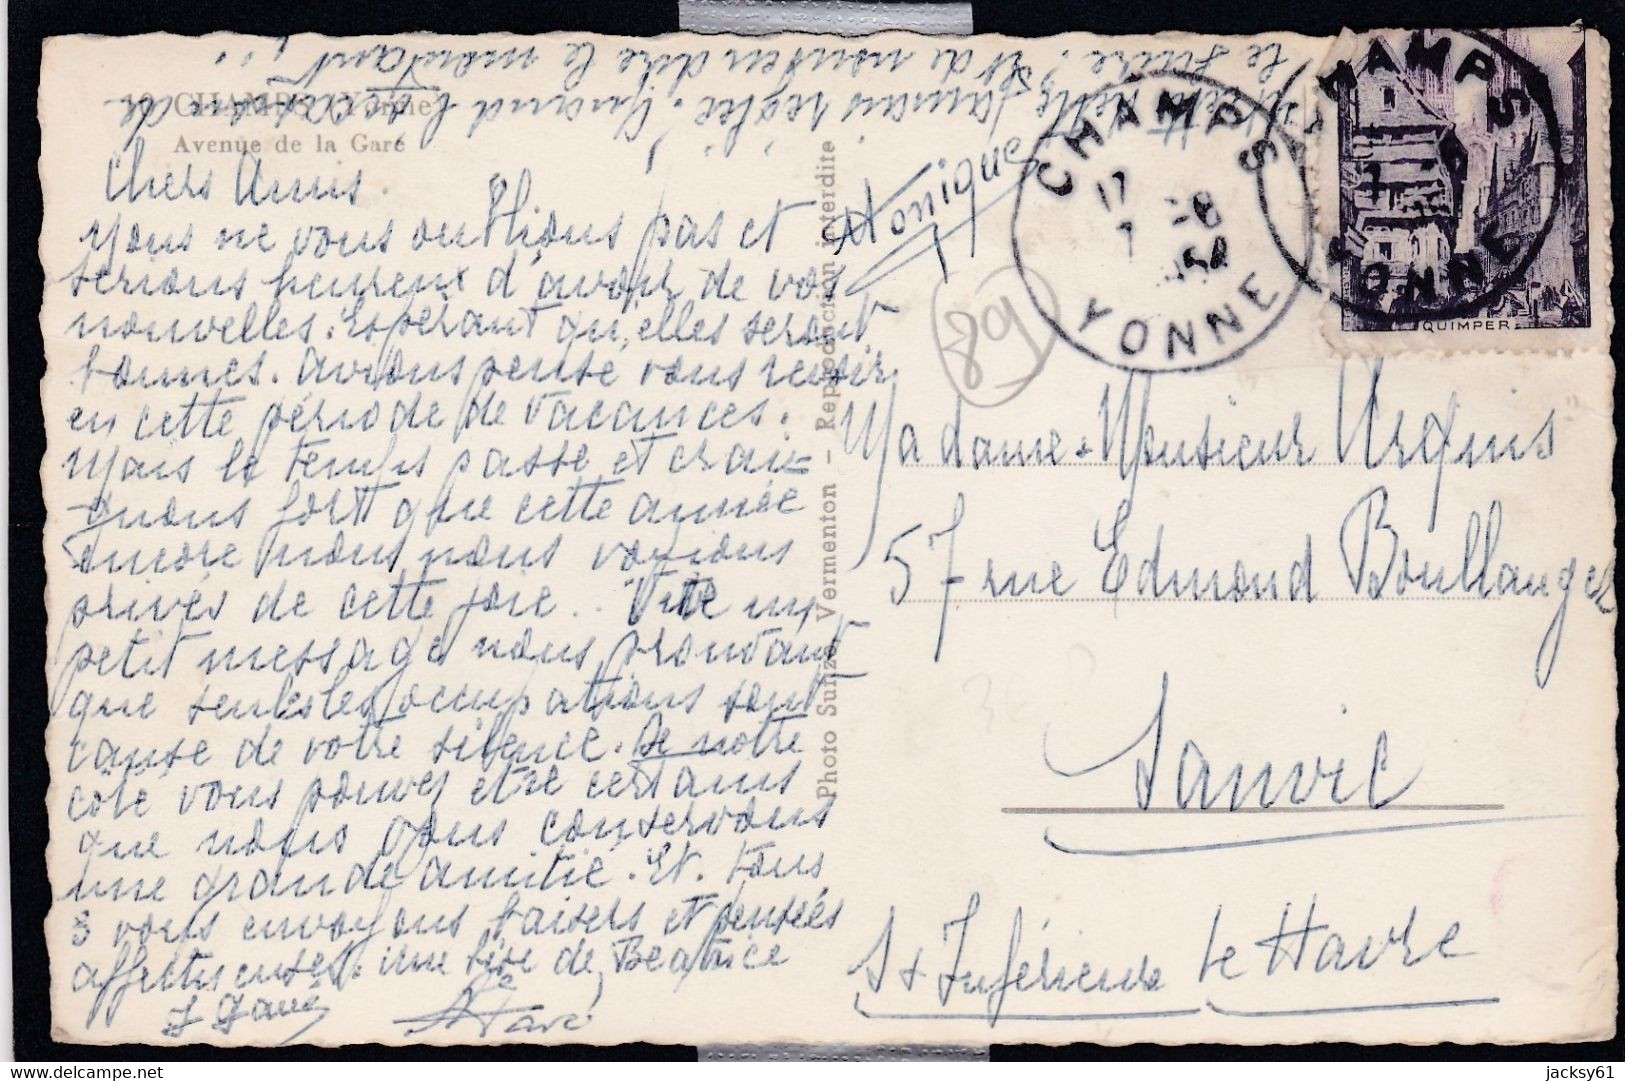 19 CHAMPS (Yonne)
Avenue de la Gare
Chers Amis.
Nous ne vous oublions pas et
serions heureux d'avoir de vos
nouvelles. Espérant qu'elles seront
bonnes. avions pensé vous revoir
en cette période de vacances.
Mais le temps passe et crai-
gnons fort que cette année
encore nous nous voyions
privés de cette joie.. Vite un
petit message nous prouvant
que seules les occupations sont
cause de votre silence. De notre
côté vous pouvez etre certains
que nous vous conservons
une grande amitié. Et tous
3 vous envoyons baisers et pensées
affectueuses. une bise de Beatrice
Monique
le sucre. Et de nous en dire le montant
jamais réglé. Quand
Photo Suize Vermenton - Reproduction interdite
CHAMPS
17
7 -8
YONNE
CHAMPS
YONNE
QUIMPER
89
Madame & Monsieur
57 rue Edmond Boullanger
Sanvic
St Inférieure Le Havre
jacksy61